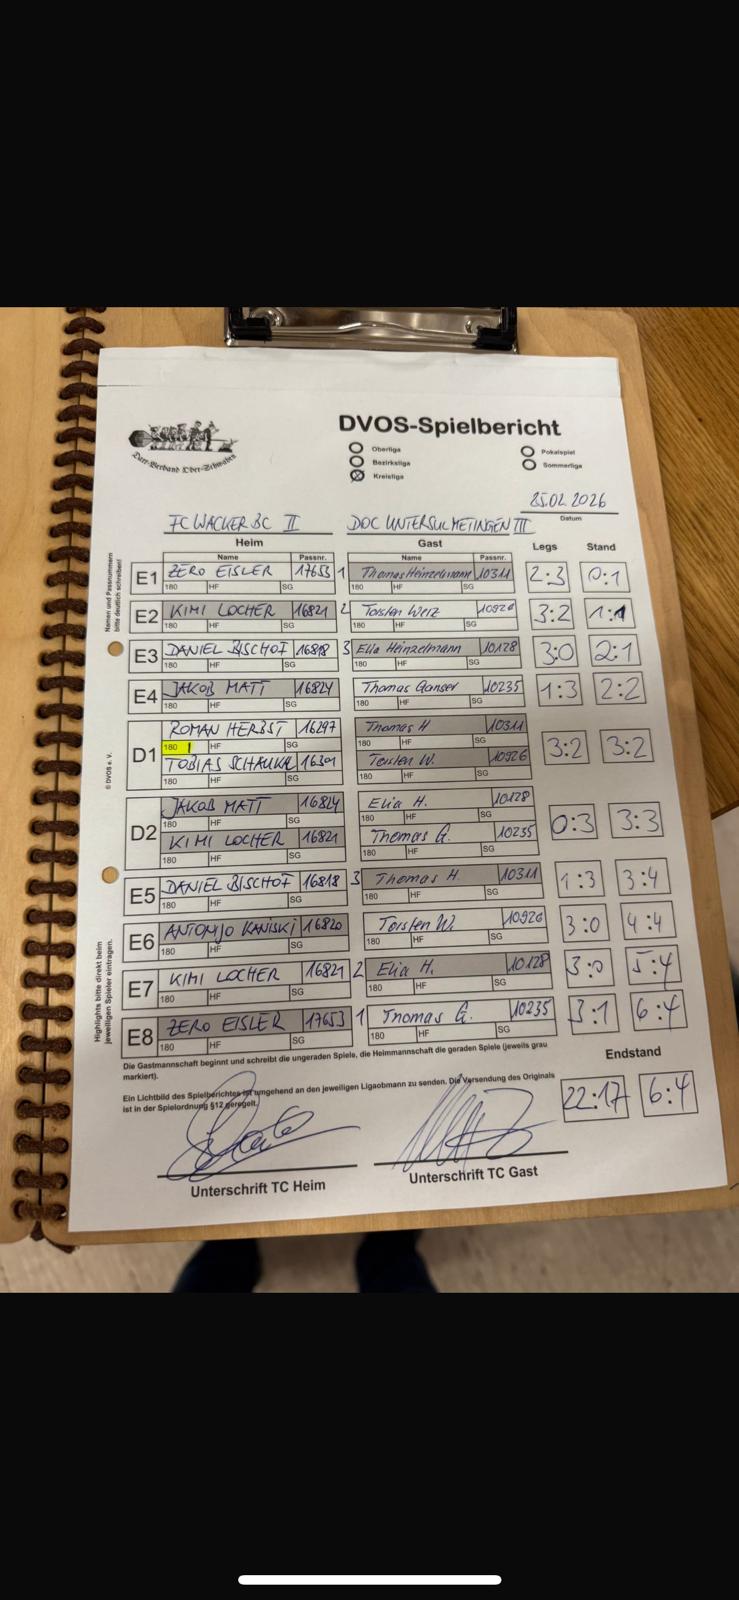 DVOS-Spielbericht
Dart-Verband Ober-Schwaben
Oberliga
Bezirksliga
Kreisliga
Pokalspiel
Sommerliga
25.02.2026
Datum
FC WACKER BC II
DOC UNTERSULMETINGEN III
Heim
Gast
Legs Stand
Name Passnr. Name Passnr.
Namen und Passnummern
bitte deutlich schreiben!
E1 ZERO EISLER 17653 1 Thomas Heinzelmann 10311 2:3 0:1
180 HF SG 180 HF SG
E2 KIMI LOCHER 16821 2 Torsten 10926 3:2 1:1
180 HF SG 180 HF SG
E3 DANIEL BISCHOF 16818 3 Elia Heinzelmann 10128 3:0 2:1
180 HF SG 180 HF SG
E4 JAKOB MATT 16824 Thomas Ganser 10235 1:3 2:2
180 HF SG 180 HF SG
D1 ROMAN HERBST 16297 Thomas H 10311 3:2 3:2
180 1 HF SG 180 HF SG
TOBIAS Torsten W. 10926
180 HF SG 180 HF SG
© DVOS e. V.
D2 JAKOB MATT 16824 Elia H. 10128 0:3 3:3
180 HF SG 180 HF SG
KIMI LOCHER 16821 Thomas G. 10235
180 HF SG 180 HF SG
E5 DANIEL BISCHOF 16818 3 Thomas H. 10311 1:3 3:4
180 HF SG 180 HF SG
E6 ANTONIJO KANISKI 16820 Torsten W. 10926 3:0 4:4
180 HF SG 180 HF SG
E7 KIMI LOCHER 16821 2 Elia H. 10128 3:0 5:4
180 HF SG 180 HF SG
E8 ZERO EISLER 17653 1 Thomas G. 10235 3:1 6:4
180 HF SG 180 HF SG
Highlights bitte direkt beim
jeweiligen Spieler eintragen.
Die Gastmannschaft beginnt und schreibt die ungeraden Spiele, die Heimmannschaft die geraden Spiele (jeweils grau
markiert).
Endstand
Ein Lichtbild des Spielberichtes ist umgehend an den jeweiligen Ligaobmann zu senden. Die Versendung des Originals
ist in der Spielordnung §12 geregelt.
22:17 6:4
Unterschrift TC Heim
Unterschrift TC Gast